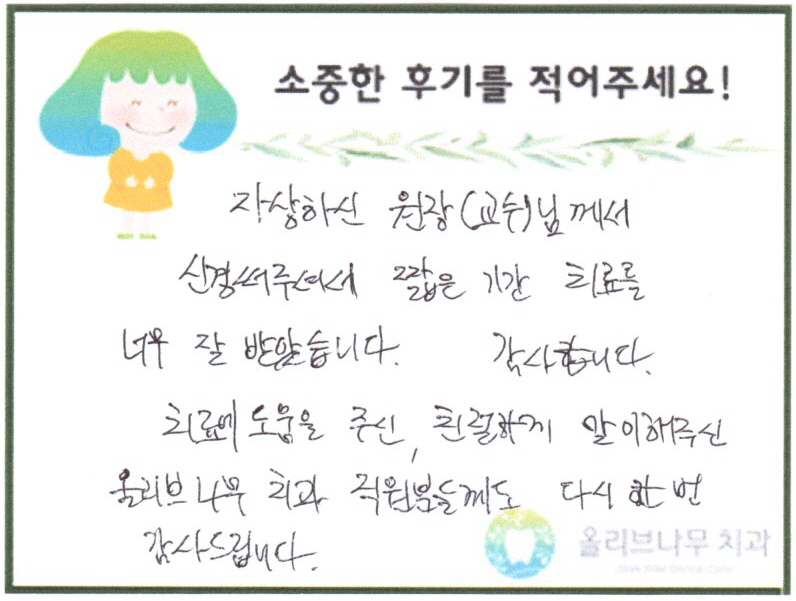 소중한 후기를 적어주세요!
자상하신 원장(교수)님께서
신경써주셔서 짧은 기간 치료를
너무 잘 받았습니다. 감사합니다.
치료에 도움을 주신, 친절하게 말이해주신
올리브나무 치과 직원분들께도 다시 한 번
감사드립니다.
올리브나무 치과